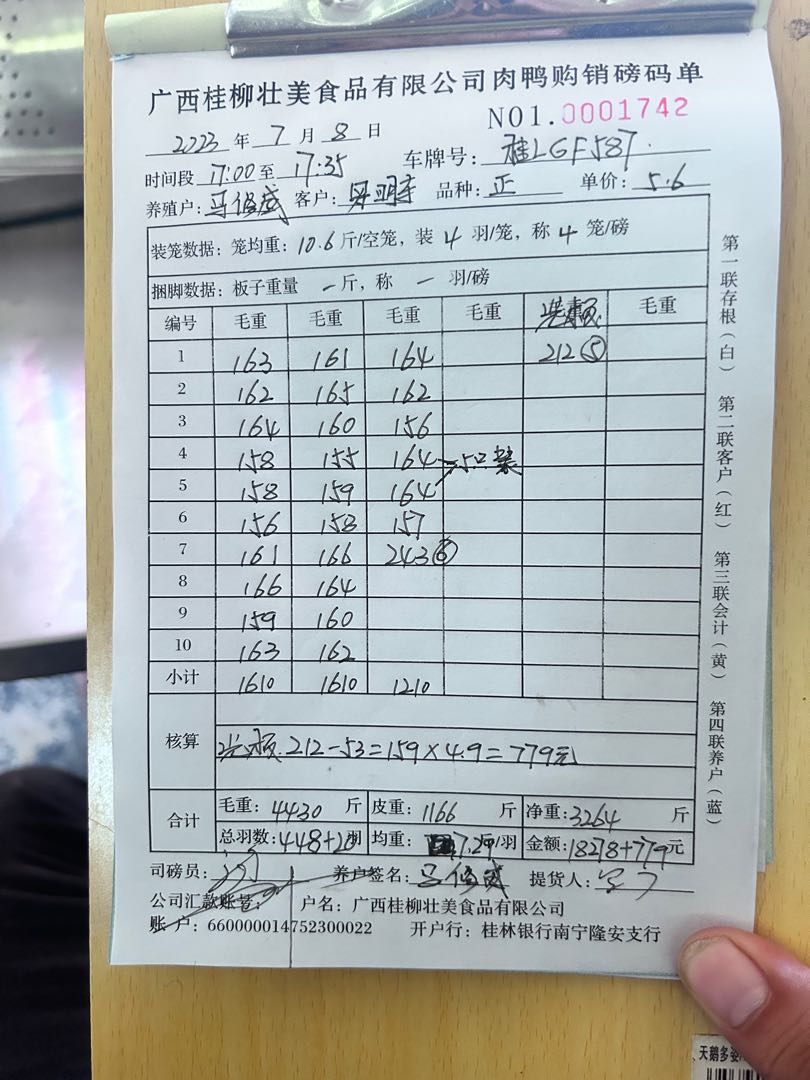 广西桂柳壮美食品有限公司肉鸭购销磅码单
NO1.0001742
2023 年 7 月 8 日
时间段 17:00 至 17:35 车牌号: 桂LGF587
养殖户: 马俊威 客户: 品种: 正 单价: 5.6
装笼数据: 笼均重: 10.6 斤/空笼, 装 4 羽/笼, 称 4 笼/磅
捆脚数据: 板子重量 — 斤, 称 — 羽/磅
编号 毛重 毛重 毛重 毛重 毛重
1 163 161 164 212⑤
2 162 165 162
3 164 160 156
4 158 155 164 5只装
5 158 159 164
6 156 158 157
7 161 166 243⑥
8 166 164
9 159 160
10 163 162
小计 1610 1610 1210
核算 212-53=159×4.9=779元
合计 毛重: 4430 斤 皮重: 1166 斤 净重: 3264 斤
总羽数: 448+20 羽 均重: 7.29 斤/羽 金额: 18278+779 元
司磅员: 养户签名: 马俊威 提货人:
公司汇款账号: 户名: 广西桂柳壮美食品有限公司
账户: 660000014752300022 开户行: 桂林银行南宁隆安支行
第一联存根(白) 第二联客户(红) 第三联会计(黄) 第四联养户(蓝)
天鹅多姿